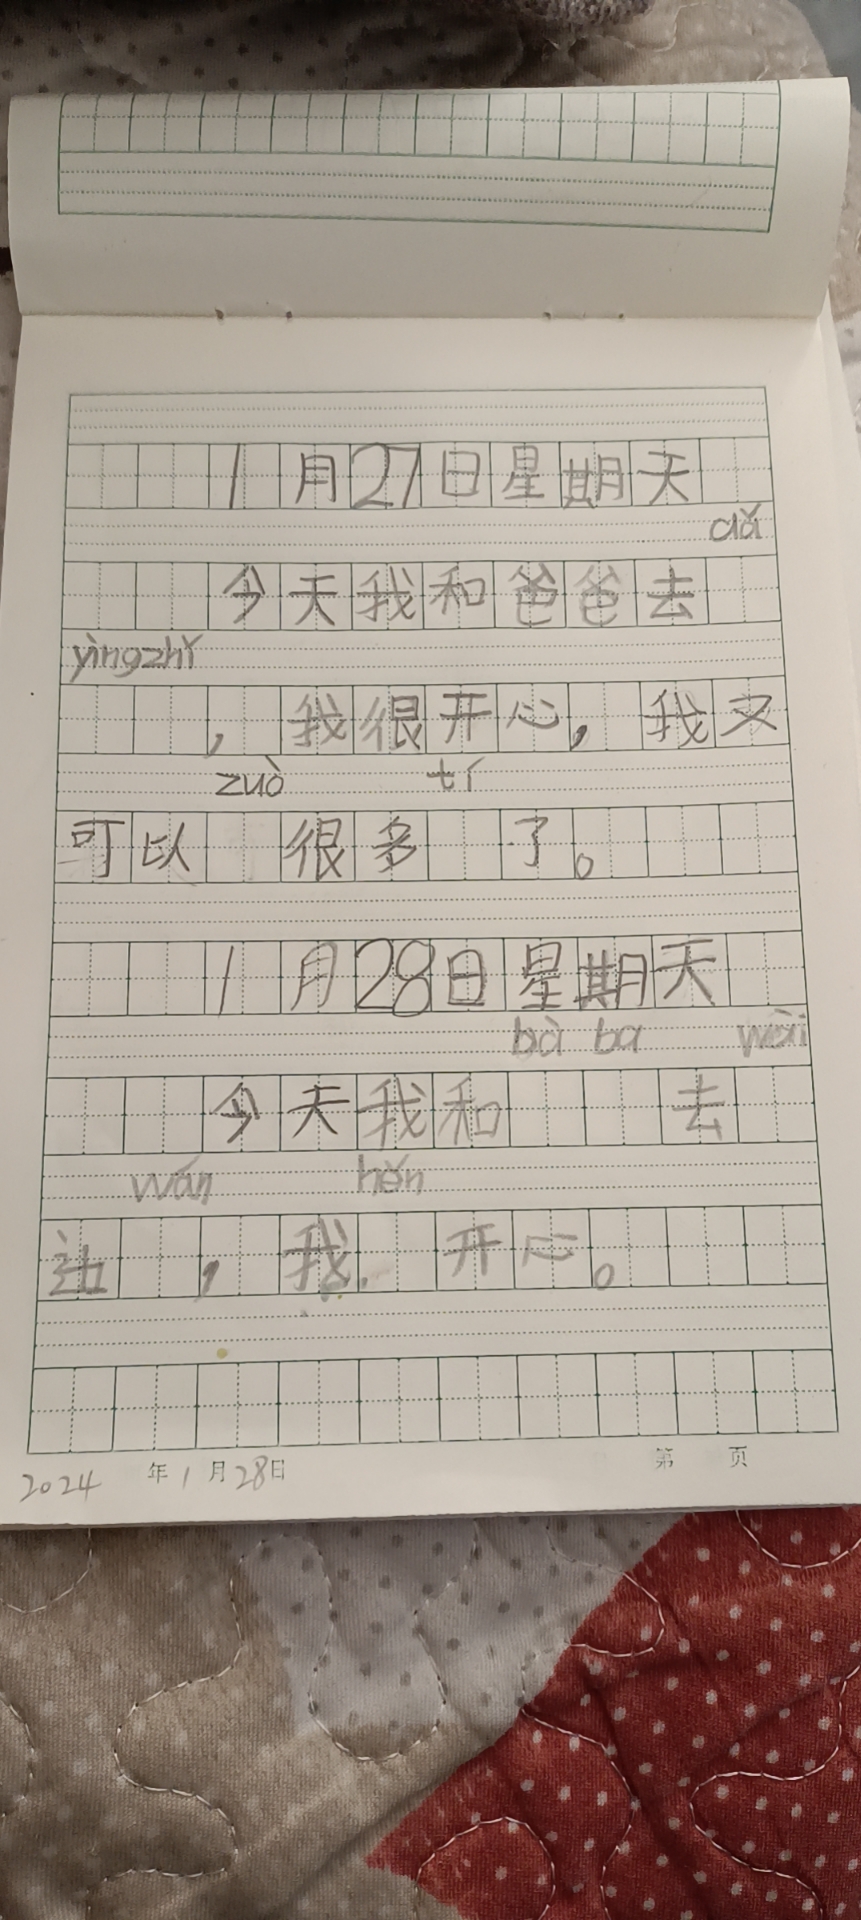 1月27日星期天
dǎ
今天我和爸爸去
yìngzhǐ
，我很开心，我又
zuò tí
可以 很多 了。
1月28日星期天
bà ba wài
今天我和 去
wán hěn
边 ，我 开心。
2024年1月28日 第 页